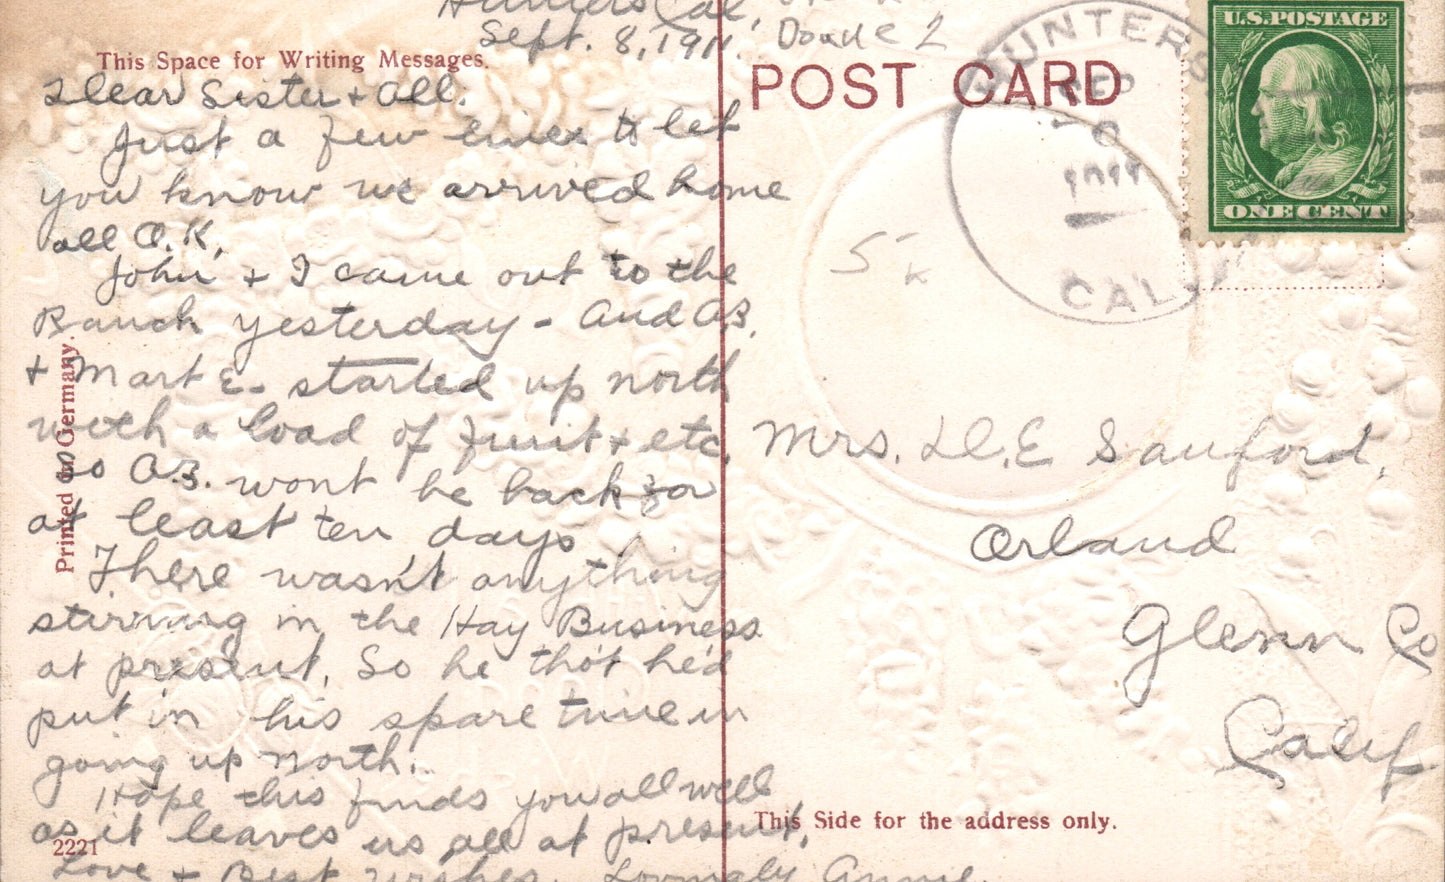 Hunters Cal,
Sept. 8, 1911.
This Space for Writing Messages.
Dear Sister + all.
Just a few lines to let
you know we arrived home
all O.K.
John + I came out to the
Ranch yesterday - And A.B.
+ Mart E. started up north
with a load of fruit + etc.
so A.B. wont be back for
at least ten days
There wasn't anything
stirring in the Hay Business
at present. So he tho't he'd
put in his spare time in
going up north.
Hope this finds you all well
as it leaves us all at present,
Love + Best wishes. Lovingly Annie.
Printed in Germany.
2221
POST CARD
HUNTERS
SEP
CAL.
U.S. POSTAGE
ONE CENT
Mrs. D. E Sanford,
Orland
Glenn Co
Calif
This Side for the address only.